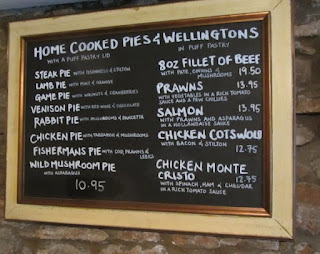 HOME COOKED PIES & WELLINGTONS
WITH A PUFF PASTRY LID
STEAK PIE WITH & STILTON
LAMB PIE WITH MINT & ORANGE
GAME PIE WITH & CRANBERRIES
VENISON PIE WITH RED WINE & CHOCOLATE
RABBIT PIE WITH MUSHROOMS & PANCETTA
CHICKEN PIE WITH TARRAGON & MUSHROOMS
FISHERMANS PIE WITH COD, PRAWNS & LEEKS
WILD MUSHROOM PIE
WITH ASPARAGUS
10.95
IN PUFF PASTRY
8OZ FILLET OF BEEF
WITH PATE, ONIONS & MUSHROOMS 19.50
PRAWNS 13.95
WITH VEGETABLES IN A RICH TOMATO
SAUCE AND A FEW CHILLIES
SALMON 13.95
WITH PRAWNS AND ASPARAGUS
IN A HOLLANDAISE SAUCE
CHICKEN COTSWOLD
WITH BACON & STILTON 12.75
CHICKEN MONTE
CRISTO 12.75
WITH SPINACH, HAM & CHEDDAR
IN A RICH TOMATO SAUCE